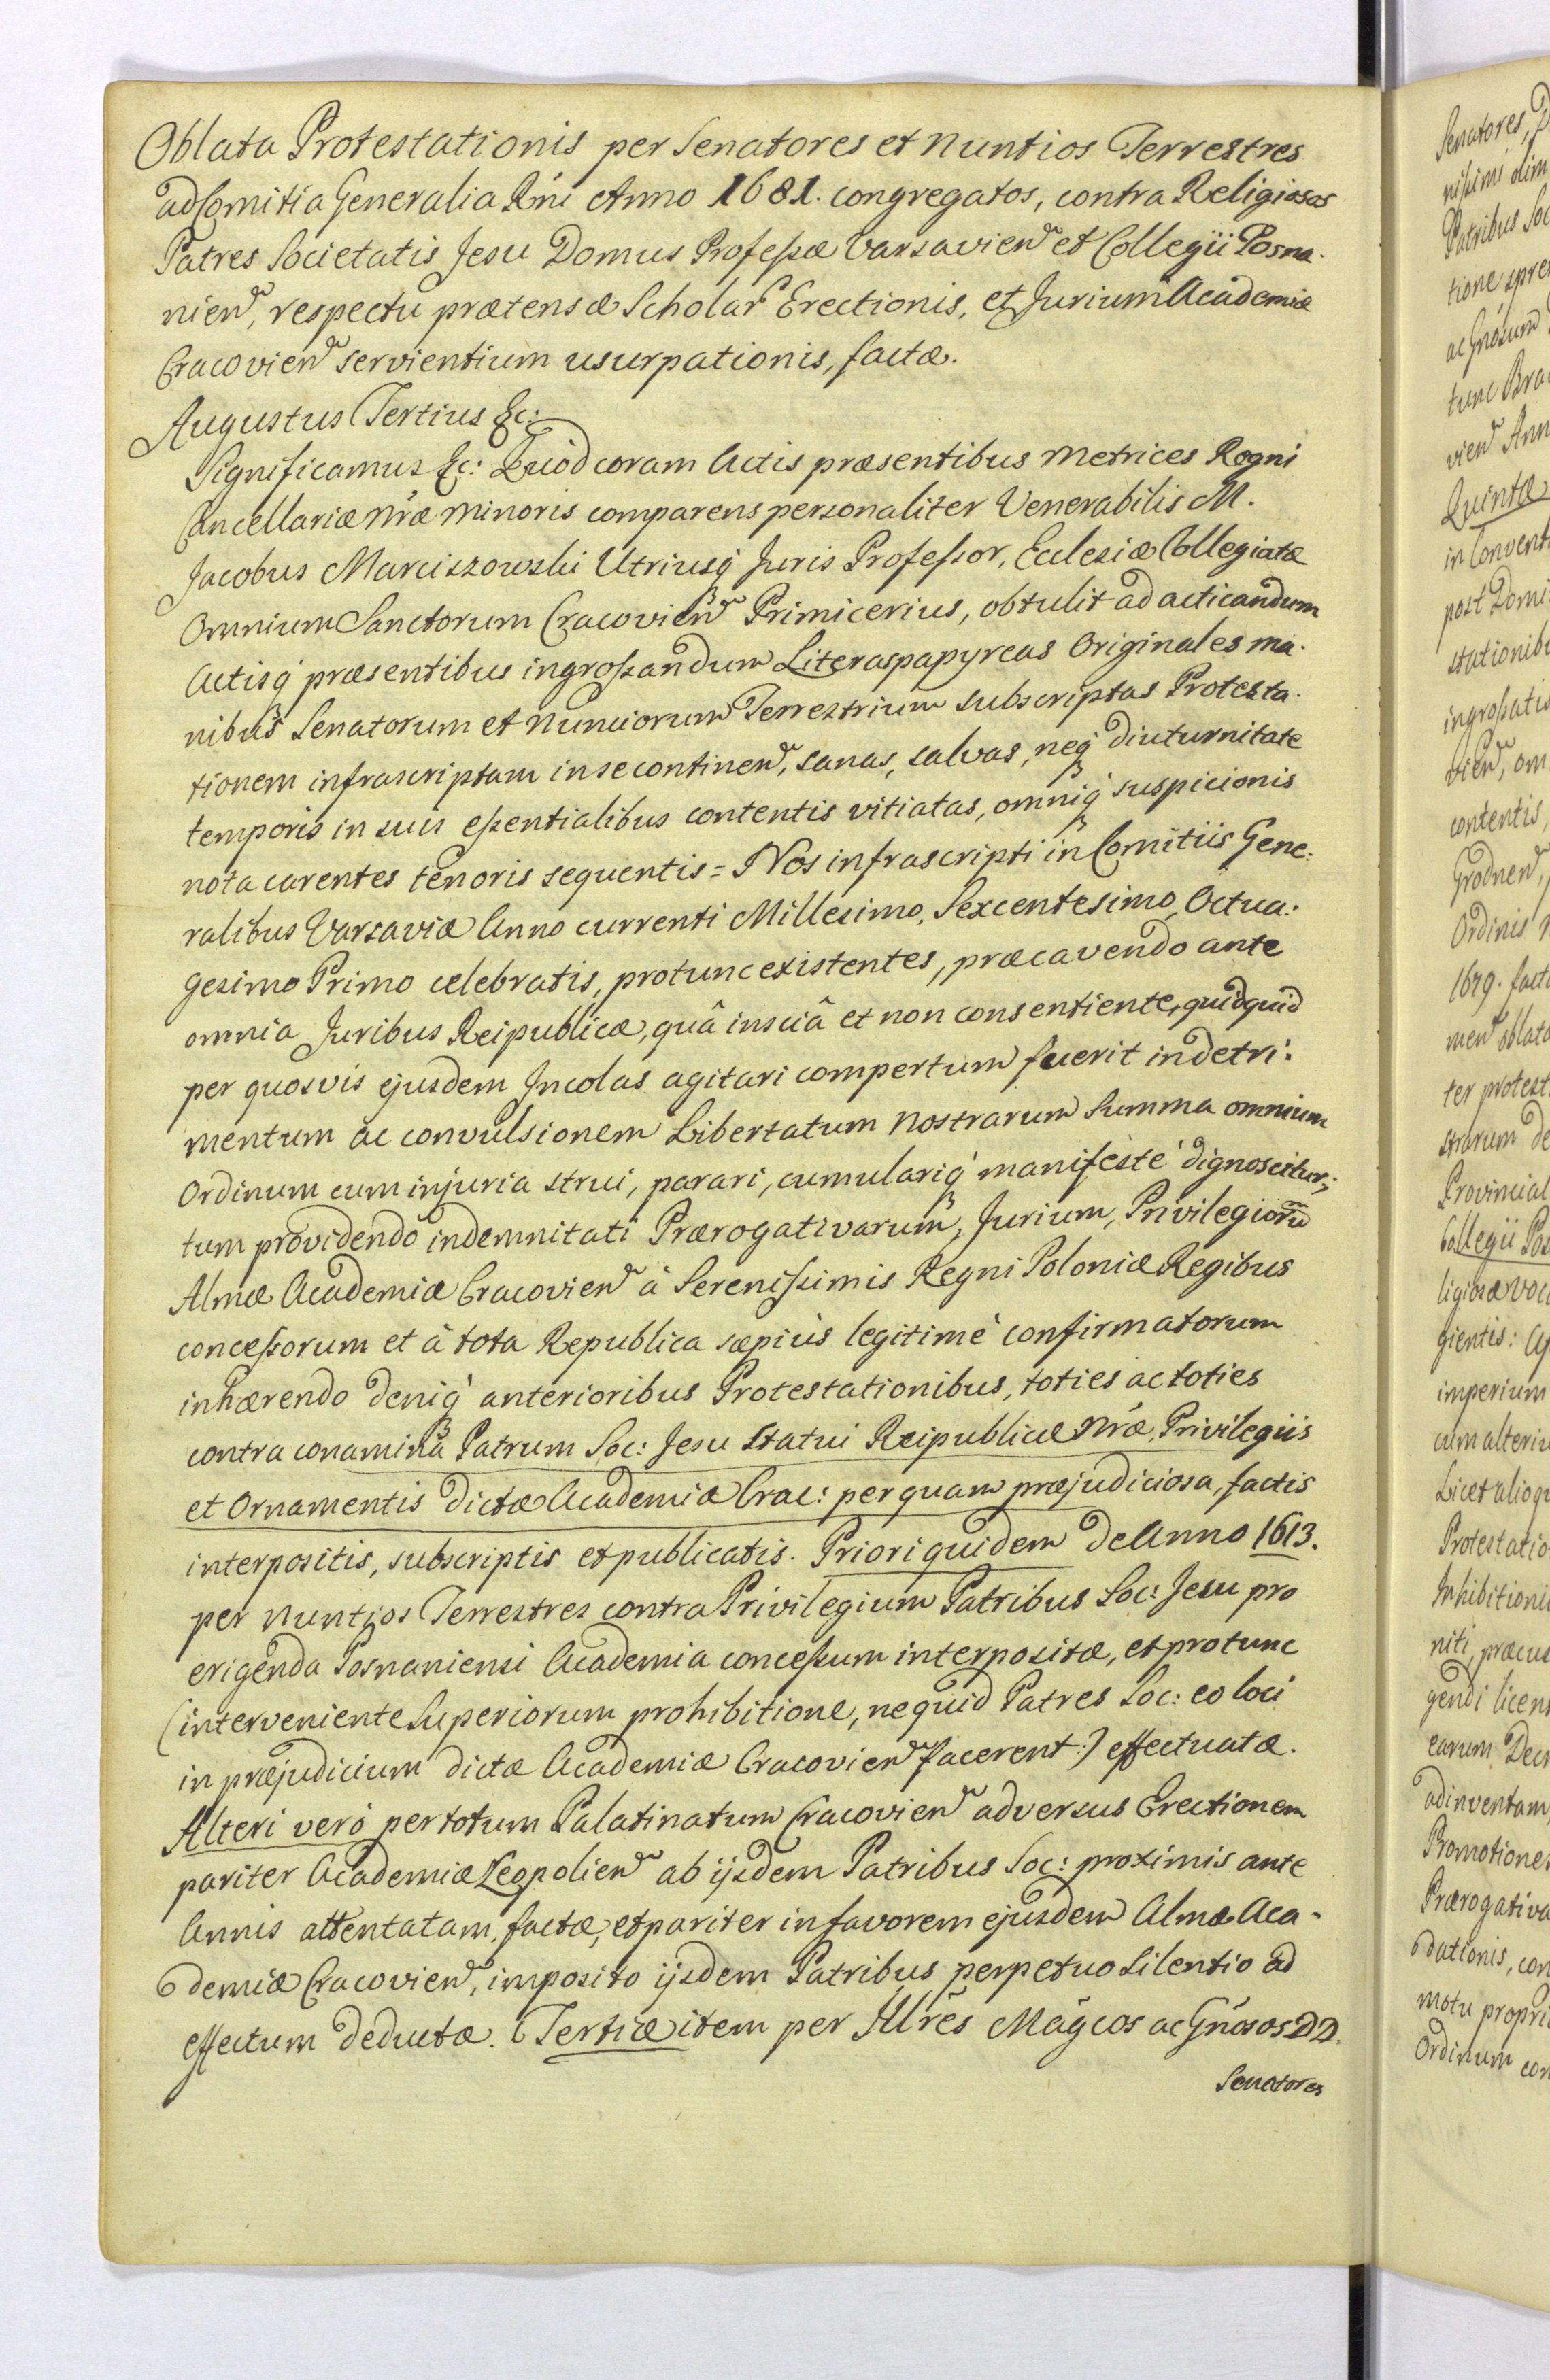 Oblata Protestationis per Senatores et Nuntios Terrestres
ad Comitia Generalia Rńi Anno 1681. congregatos, contra Religiosos
Patres Societatis Jesu Domus Professæ Varsavien̄ et Collegii Posna-
nien̄, respectu prætensæ Scholar̄ Erectionis, et Jurium Academiæ
Cracovien̄ servientium usurpationis, factæ.
Augustus Tertius &c:
Significamus &c: Quod coram Actis præsentibus Metrices Regni
Cancellariæ Nr̃æ Minoris comparens personaliter Venerabilis M.
Jacobus Marciszowski Utriusq́ Juris Professor, Ecclesiæ Collegiatæ
Omnium Sanctorum Cracovien̄ Primicerius, obtulit ad acticandum
Actisq́ præsentibus ingrossandum Literas papyreas Originales ma-
nibus Senatorum et Nunciorum Terrestrium subscriptas Protesta-
tionem infrascriptam in se continen̄, sanas, salvas, neq́ diuturnitate
temporis in suis essentialibus contentis vitiatas, omniq́ suspicionis
nota carentes tenoris sequentis = Nos infrascripti in Comitiis Gene:
ralibus Varsaviæ Anno currenti Millesimo, Sexcentesimo, Octua:
gesimo Primo celebratis, protunc existentes, præcavendo ante
omnia Juribus Reipublicæ, quâ insciâ et non consentiente, quidquid
per quosvis ejusdem Incolas agitari compertum fuerit in detri:
mentum ac convulsionem Libertatum Nostrarum Summa omnium
Ordinum cum injuria strui, parari, cumulariq́ manifestè dignoscitur;
tum providendo indemnitati Prærogativarum, Jurium, Privilegiorũ
Almæ Academiæ Cracovien̄ à Serenissimis Regni Poloniæ Regibus
concessorum et à tota Republica sæpius legitimè confirmatorum
inhærendo deniq́ anterioribus Protestationibus, toties ac toties
contra conamina Patrum Soc: Jesu Statui Reipublicæ Nr̃æ, Privilegiis
et Ornamentis dictæ Academiæ Crac: perquam præjudiciosa, factis
interpositis, subscriptis et publicatis. Priori quidem de Anno 1613.
per Nuntios Terrestres contra Privilegium Patribus Soc: Jesu pro
erigenda Posnaniensi Academia concessum interpositæ, et protunc
(interveniente Superiorum prohibitione, ne quid Patres Soc: eo loci
in præjudicium dictæ Academiæ Cracovien̄ facerent:) effectuatæ.
Alteri verò per totum Palatinatum Cracovien̄ adversus Erectionem
pariter Academiæ Leopolien̄ ab ijsdem Patribus Soc: proximis ante
Annis attentatam, factæ, et pariter in favorem ejusdem Almæ Aca-
demiæ Cracovien̄, imposito ijsdem Patribus perpetuo Silentio ad
effectum deductæ. Tertiæ item per Illr̃es Magcos ac Gnosos DD.
Senatores
Senatores,
nissimi olim
Patribus Soc
tione spre
ac Gnosum
tunc Bra
vien̄ Ann
Quintæ
in Convent
post Domi
stationibu
ingrossatis
vien̄, om
contentis,
Grodnen̄,
Ordinis
1679. fact
men̄ oblata
ter protest
strorum de
Provincial
Collegii Pos
ligiosæ voc
gientis:
imperium
cum alteriu
Licet alioqu
Protestatio
Inhibitioni
niti, præcu
gendi licen
earum Decr
adinventam
Promotiones
Prærogativa
dationis, con
motu propri
Ordinum con